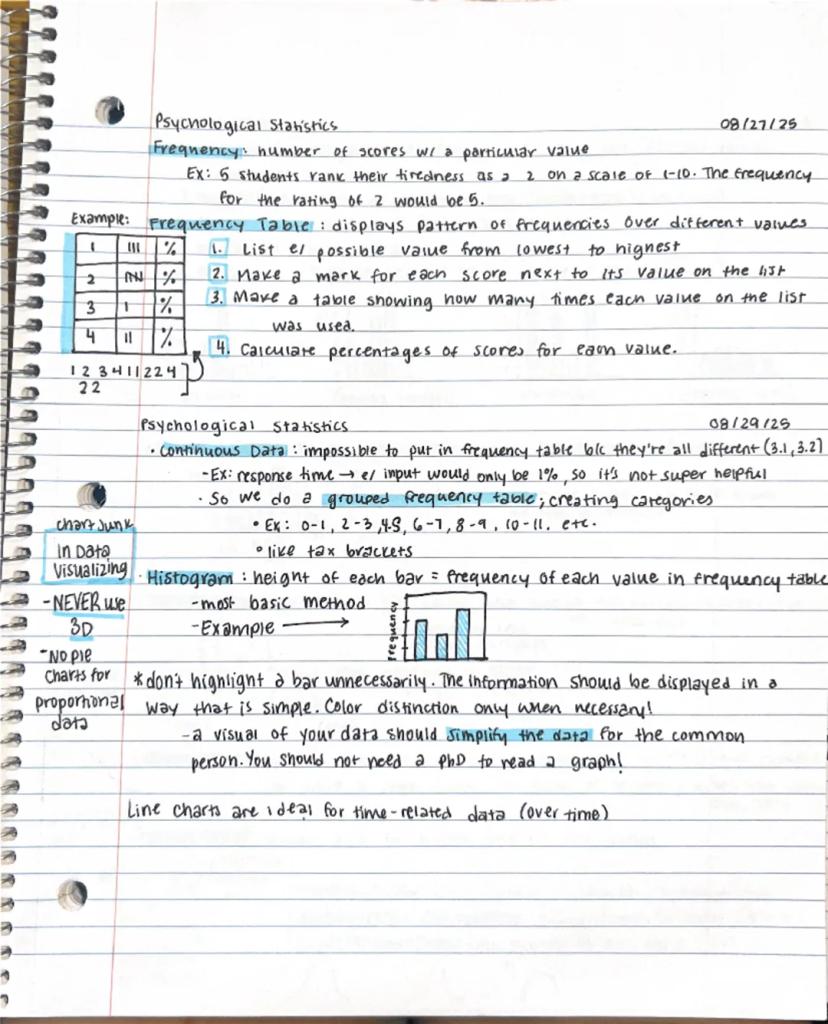 Psychological Statistics 08/27/25
Frequency: number of scores w/ a particular value
Ex: 5 students rank their tiredness as a 2 on a scale of 1-10. The frequency
for the rating of 2 would be 5.
Example: Frequency Table: displays pattern of frequencies over different values
1 III %
2 %
3 I %
4 II %
1 2 3 4 1 1 2 2 4
2 2
1. List e/ possible value from lowest to highest
2. Make a mark for each score next to its value on the list
3. Make a table showing how many times each value on the list
was used.
4. Calculate percentages of scores for each value.
Psychological Statistics 08/29/25
· Continuous Data: impossible to put in frequency table b/c they're all different (3.1, 3.2)
-Ex: response time → e/ input would only be 1%, so it's not super helpful
· So we do a grouped frequency table; creating categories
• Ex: 0-1, 2-3, 4-5, 6-7, 8-9, 10-11. etc.
• like tax brackets
Chart Junk
In Data
Visualizing
-NEVER use
3D
-No pie
charts for
proportional
data
· Histogram: height of each bar = frequency of each value in frequency table
-most basic method
-Example →
Frequency
*don't highlight a bar unnecessarily. The information should be displayed in a
way that is simple. Color distinction only when necessary!
-a visual of your data should simplify the data for the common
person. You should not need a PhD to read a graph!
Line charts are ideal for time-related data (over time)